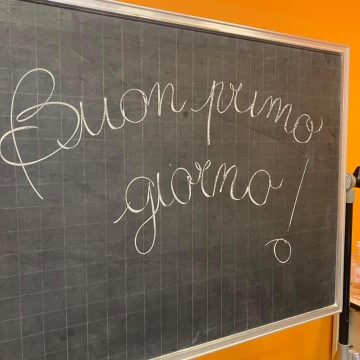 Buon primo
giorno!